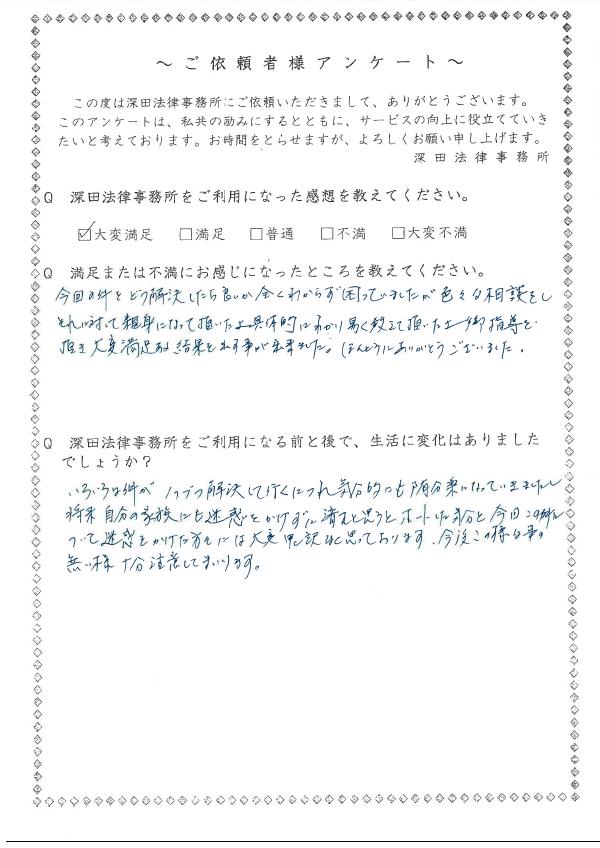 ～ご依頼者様アンケート～
この度は深田法律事務所にご依頼いただきまして、ありがとうございます。
このアンケートは、私共の励みにするとともに、サービスの向上に役立てていき
たいと考えております。お時間をとらせますが、よろしくお願い申し上げます。
深田法律事務所
Q 深田法律事務所をご利用になった感想を教えてください。
☑大変満足 □満足 □普通 □不満 □大変不満
Q 満足または不満にお感じになったところを教えてください。
今回の件をどう解決したら良いか全くわからず困っていましたが色々な相談をし
それに対して親身になって頂いた上具体的にわかり易く教えて頂いた上御指導を
頂き大変満足ある結果を出す事が出来ました。ほんとうにありがとうございました。
Q 深田法律事務所をご利用になる前と後で、生活に変化はありました
でしょうか？
いろいろな件が1つづつ解決して行くにつれ気分的にも随分楽になっていきましたし
将来自分の家族にも迷惑をかけずに済むと思うとホットした気分と今回この件に
ついて迷惑をかけた方々には大変申し訳なく思っております。今後この様な事の
無い様十分注意してまいります。